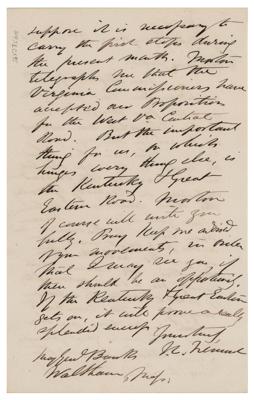 suppose it is necessary to
carry the first steps during
the present month. Morton
telegraphs me that the
Virginia Commissioners have
accepted our Proposition
for the West Va Central
Road. But the important
thing for us, on which
hinges every thing else, is
the Kentucky & Great
Eastern Road. Morton
of course will write you
fully. Pray keep me advised
of yr movements, in order
that I may see you if
there should be an opportunity.
If the Kentucky & Great Eastern
gets on, it will prove a really
splendid success
Yours truly,
J. C. Fremont
Maj Genl Banks
Waltham, Mass.